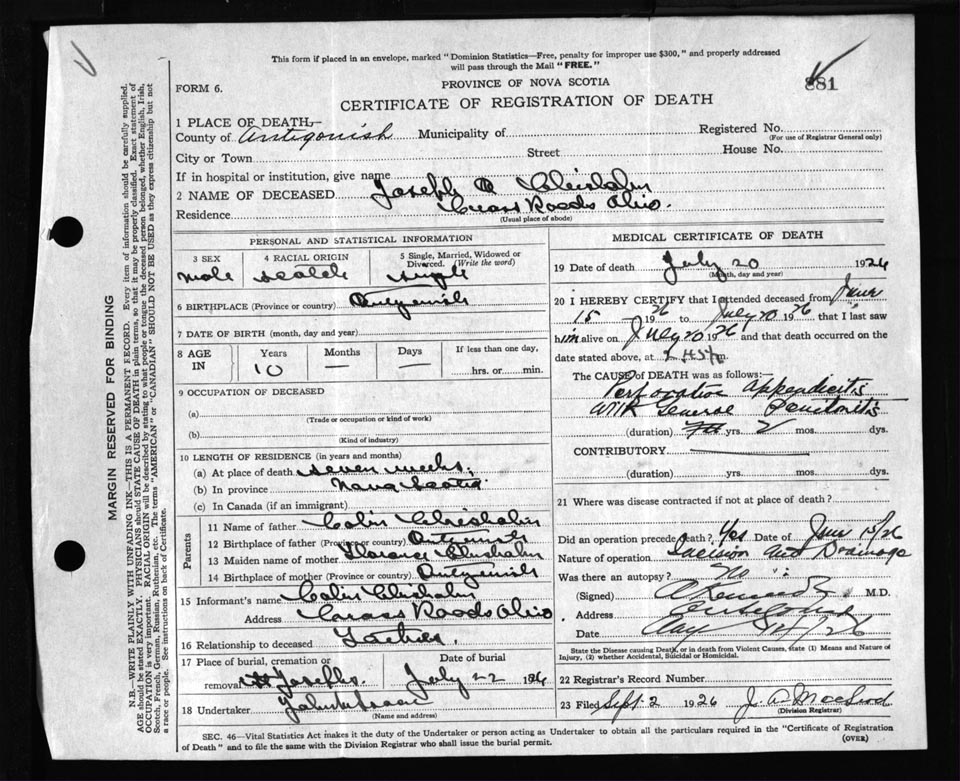 This form if placed in an envelope, marked "Dominion Statistics—Free, penalty for improper use $300," and properly addressed
will pass through the Mail "FREE."
881
PROVINCE OF NOVA SCOTIA
FORM 6.
CERTIFICATE OF REGISTRATION OF DEATH
1 PLACE OF DEATH,—
County of Antigonish Municipality of Registered No.
(For use of Registrar General only)
City or Town Street House No.
If in hospital or institution, give name
2 NAME OF DECEASED Joseph Chisholm
Residence Cross Roads Ohio.
(Usual place of abode)
PERSONAL AND STATISTICAL INFORMATION
3 SEX 4 RACIAL ORIGIN 5 Single, Married, Widowed or Divorced. (Write the word)
male scotch single
6 BIRTHPLACE (Province or country) Antigonish
7 DATE OF BIRTH (month, day and year)
8 AGE IN Years Months Days If less than one day,
10 — — hrs. or min.
9 OCCUPATION OF DECEASED
(a)
(Trade or occupation or kind of work)
(b)
(Kind of industry)
10 LENGTH OF RESIDENCE (in years and months)
(a) At place of death seven weeks,
(b) In province Nova Scotia
(c) In Canada (if an immigrant)
Parents
11 Name of father Colin Chisholm
12 Birthplace of father (Province or country) Antigonish
13 Maiden name of mother Florence Chisholm
14 Birthplace of mother (Province or country) Antigonish
15 Informant's name Colin Chisholm
Address Cross Roads Ohio
16 Relationship to deceased Father.
17 Place of burial, cremation or removal St Josephs. Date of burial July 22 1926
18 Undertaker
(Name and address)
MEDICAL CERTIFICATE OF DEATH
19 Date of death July 20 1926
(Month, day and year)
20 I HEREBY CERTIFY that I attended deceased from June
15 1926 to July 20 1926, that I last saw
him alive on July 20 1926 and that death occurred on the
date stated above, at m.
The CAUSE of DEATH was as follows:—
Perforative appendicitis
with General Peritonitis
(duration) yrs. mos. dys.
CONTRIBUTORY
(duration) yrs. mos. dys.
21 Where was disease contracted if not at place of death?
Did an operation precede death? Yes Date of June 15/26
Nature of operation Incision and Drainage
Was there an autopsy? No
(Signed) M.D.
Address Antigonish
Date
State the Disease causing Death, or in death from Violent Causes, state (1) Means and Nature of
Injury, (2) whether Accidental, Suicidal or Homicidal.
22 Registrar's Record Number
23 Filed Sept. 2 1926 J. A. MacLeod
(Division Registrar)
SEC. 46—Vital Statistics Act makes it the duty of the Undertaker or person acting as Undertaker to obtain all the particulars required in the "Certificate of Registration
of Death" and to file the same with the Division Registrar who shall issue the burial permit. (OVER)
MARGIN RESERVED FOR BINDING
N.B.—WRITE PLAINLY WITH UNFADING INK—THIS IS A PERMANENT RECORD. Every item of information should be carefully supplied.
AGE should be stated EXACTLY. PHYSICIANS should STATE CAUSE OF DEATH in plain terms, so that it may be properly classified. Exact statement of
OCCUPATION is very important. RACIAL ORIGIN will be described by stating to what people or tongue the deceased person belonged, whether English, Irish,
Scotch, French, German, Russian, Ruthenian, etc. The terms "AMERICAN" or "CANADIAN" SHOULD NOT BE USED as they express citizenship but not
a race or people. See instructions on back of Certificate.